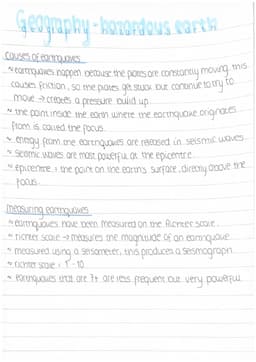 Geography - hazardous earth
causes of earthquakes
~ earthquakes happen because the plates are constantly moving, this
causes friction, so the plates get stuck but continue to try to
move → creates a pressure build up
~ the point inside the earth where the earthquake originates
from is called the focus.
~ energy from the earthquakes are released in seismic waves.
~ seismic waves are most powerful at the epicentre.
~ epicentre : the point on the earths surface, directly above the
focus.
measuring earthquakes
~ earthquakes have been measured on the Richter scale.
~ richter scale → measures the magnitude of an earthquake
~ measured using a seismometer, this produces a seismograph.
~ richter scale : 1 - 10
~ earthquakes that are 7+ are less frequent but very powerful.